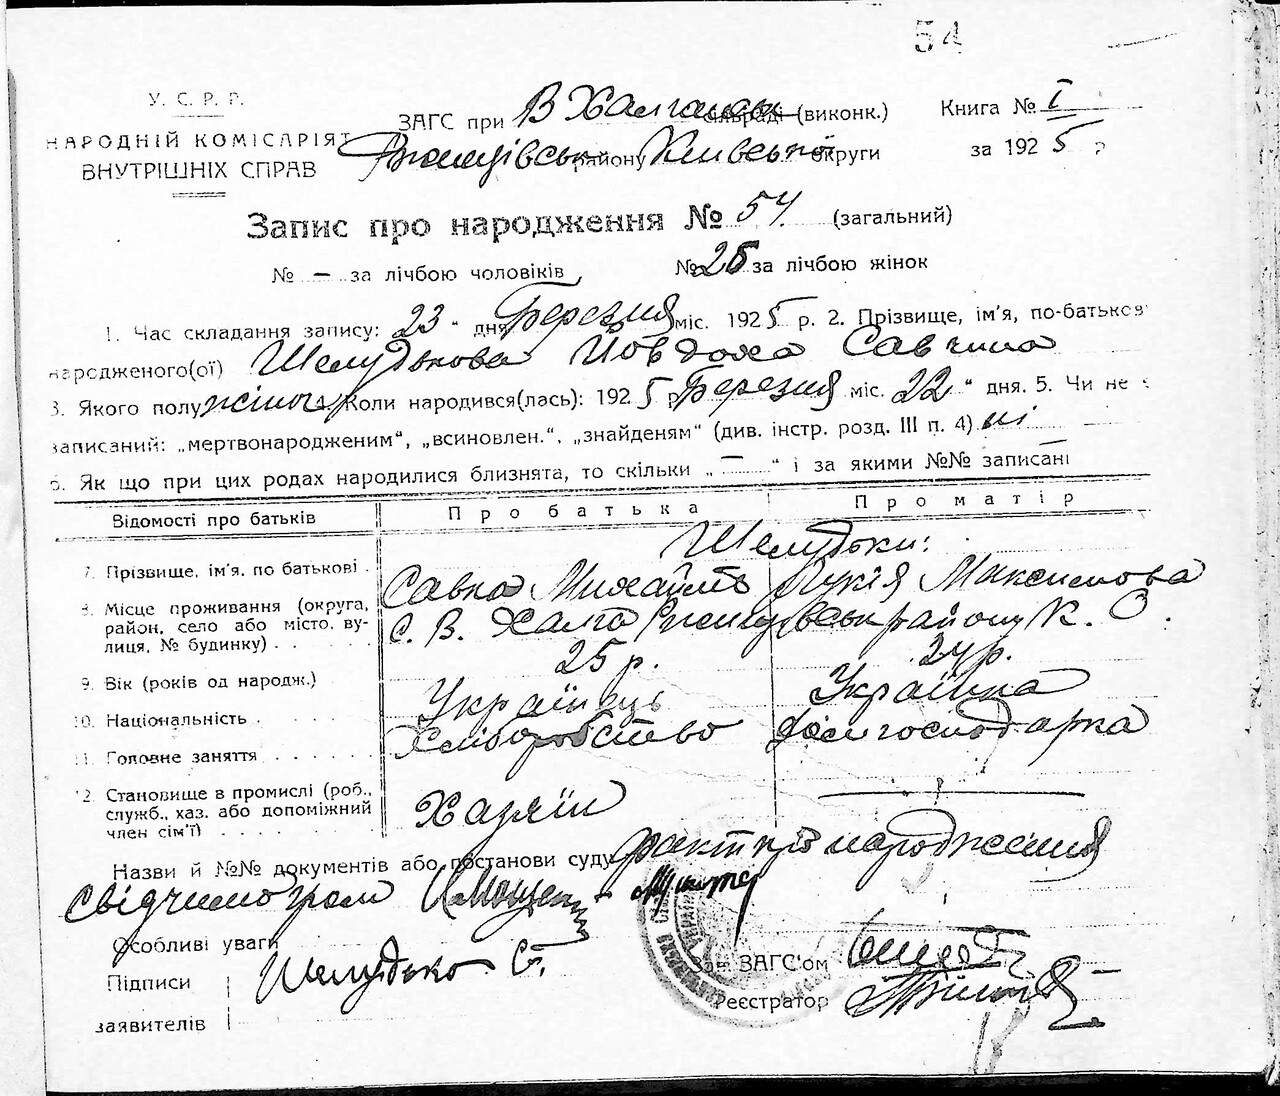 54
У. С. Р. Р.
НАРОДНІЙ КОМІСАРІЯТ
ВНУТРІШНІХ СПРАВ
ЗАГС при В Халганськ сільраді (виконк.)
Ржищівськ району Київської округи
Книга № I
за 1925 р
Запис про народження № 54. (загальний)
№ – за лічбою чоловіків № 26 за лічбою жінок
1. Час складання запису: 23 " дня Березня міс. 1925 р. 2. Прізвище, ім'я, по-батьков
народженого(ої) Шелудькова Йовдоха Савчина
3. Якого полу жіноч 4. Коли народився(лась): 1925 р Березня міс. 22 " дня. 5. Чи не є
записаний: „мертвонародженим“, „всиновлен.“, „знайденям“ (див. інстр. розд. III п. 4) ні
6. Як що при цих родах народилися близнята, то скільки „ – “ і за якими №№ записані –
Відомості про батьків Про батька Про матір
Шелудьки:
7. Прізвище, ім'я, по батькові . Савка Михайлів Лукія Максимова
8. Місце проживання (округа, район, село або місто, вулиця, № будинку) . . . . . с. В. Халча Ржищівськ району К. О.
9. Вік (років од народж.) 25 р. 24 р.
10. Національність . . . . . Українець Українка
11. Головне заняття . . . . . Хліборобство Домгосподарка
12. Становище в промислі (роб., служб., хаз. або допоміжний член сім'ї) . . . . . Хазяїн —
Назви й №№ документів або постанови суду факт про народження
свідчимо гром
Особливі уваги
Підписи
заявителів
Шелудько С.
Зав. ЗАГС'ом
Реєстратор